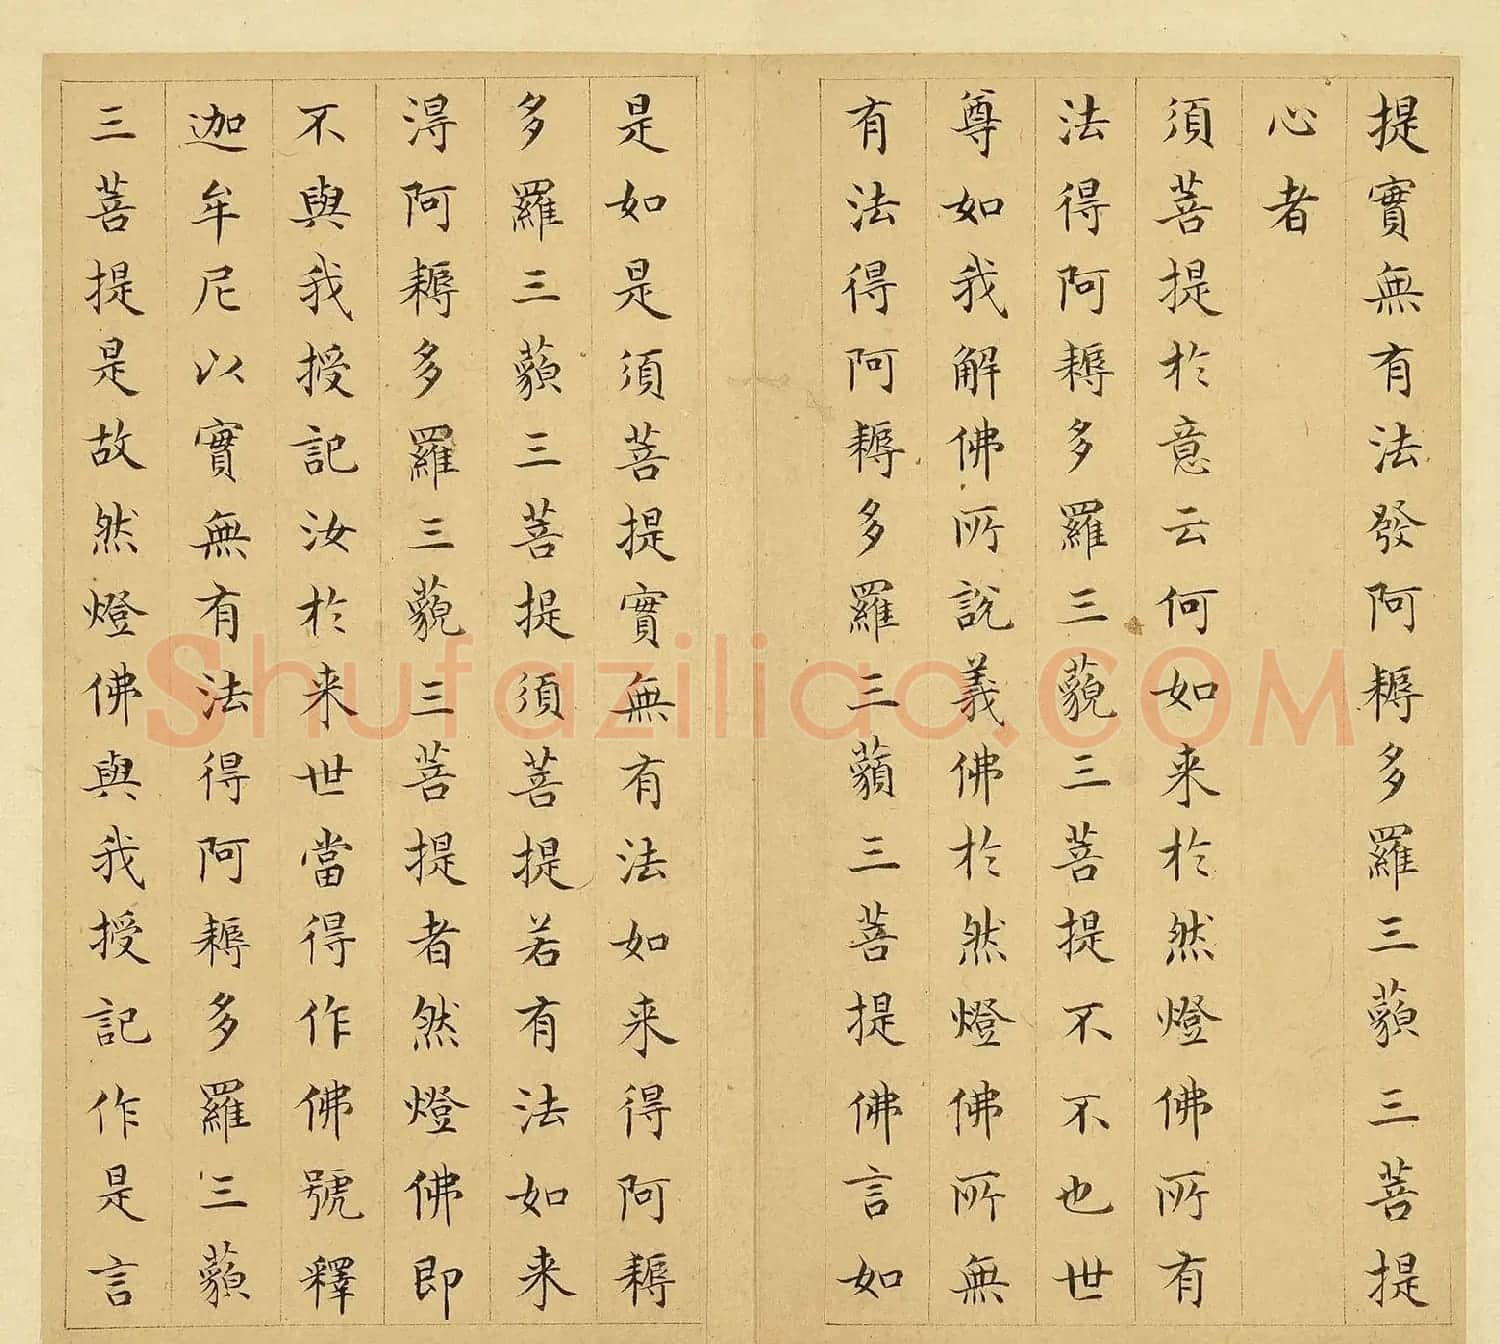 提實無有法發阿耨多羅三藐三菩提
心者
須菩提於意云何如来於然燈佛所有
法得阿耨多羅三藐三菩提不不也世
尊如我解佛所說義佛於然燈佛所無
有法得阿耨多羅三藐三菩提佛言如
是如是須菩提實無有法如来得阿耨
多羅三藐三菩提須菩提若有法如来
得阿耨多羅三藐三菩提者然燈佛即
不與我授記汝於来世當得作佛號釋
迦牟尼以實無有法得阿耨多羅三藐
三菩提是故然燈佛與我授記作是言
Shufaziliao.COM